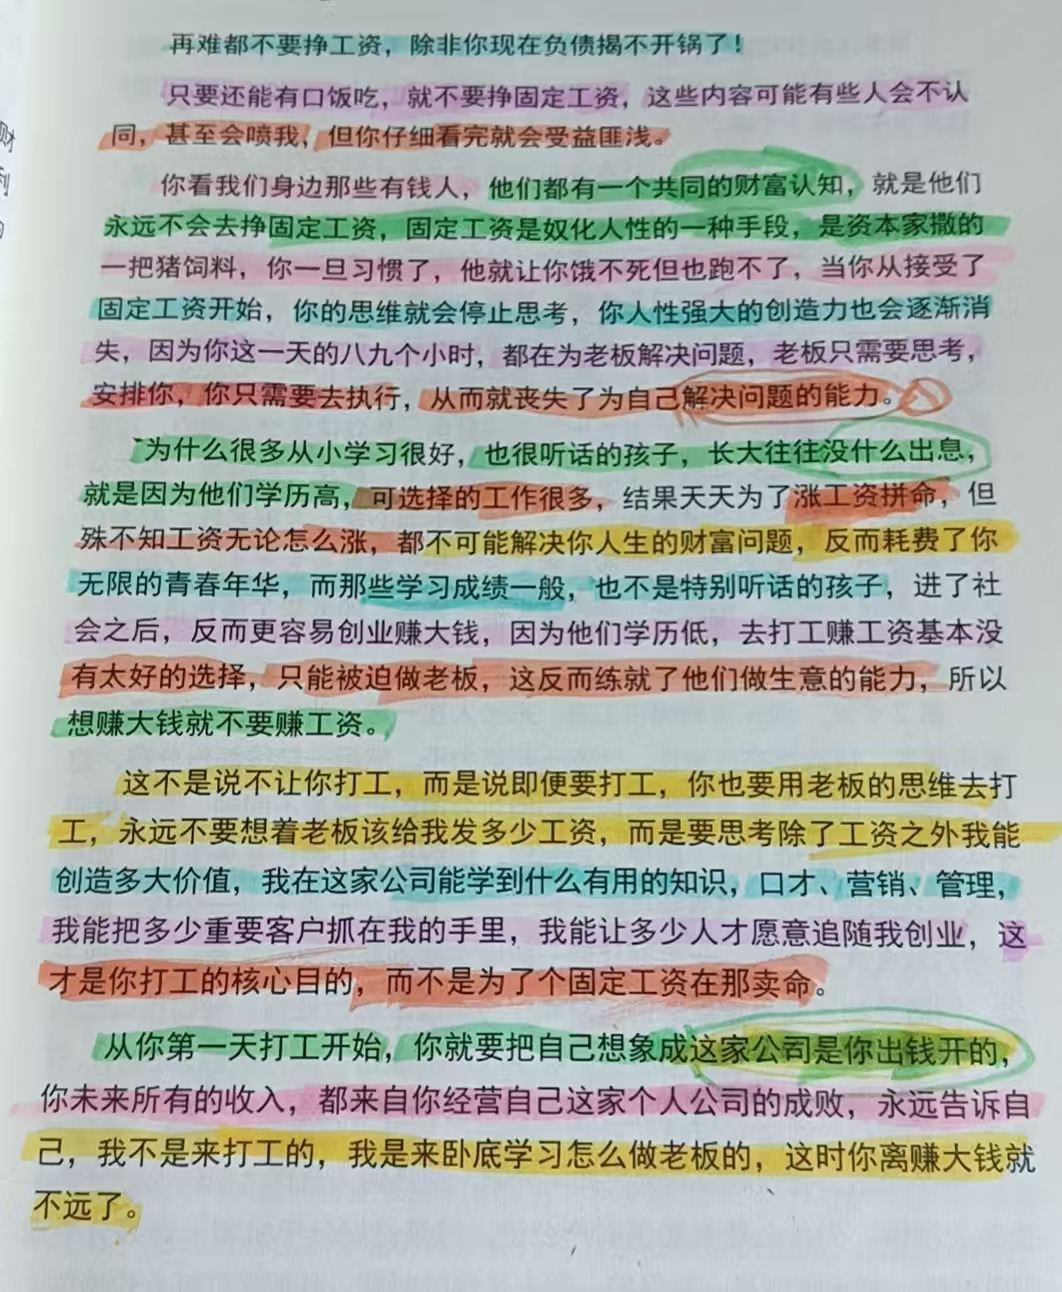 再难都不要挣工资，除非你现在负债揭不开锅了！
只要还能有口饭吃，就不要挣固定工资，这些内容可能有些人会不认
同，甚至会喷我，但你仔细看完就会受益匪浅。
你看我们身边那些有钱人，他们都有一个共同的财富认知，就是他们
永远不会去挣固定工资，固定工资是奴化人性的一种手段，是资本家撒的
一把猪饲料，你一旦习惯了，他就让你饿不死但也跑不了，当你从接受了
固定工资开始，你的思维就会停止思考，你人性强大的创造力也会逐渐消
失，因为你这一天的八九个小时，都在为老板解决问题，老板只需要思考，
安排你，你只需要去执行，从而就丧失了为自己解决问题的能力。
为什么很多从小学习很好，也很听话的孩子，长大往往没什么出息，
就是因为他们学历高，可选择的工作很多，结果天天为了涨工资拼命，但
殊不知工资无论怎么涨，都不可能解决你人生的财富问题，反而耗费了你
无限的青春年华，而那些学习成绩一般，也不是特别听话的孩子，进了社
会之后，反而更容易创业赚大钱，因为他们学历低，去打工赚工资基本没
有太好的选择，只能被迫做老板，这反而练就了他们做生意的能力，所以
想赚大钱就不要赚工资。
这不是说不让你打工，而是说即便要打工，你也要用老板的思维去打
工，永远不要想着老板该给我发多少工资，而是要思考除了工资之外我能
创造多大价值，我在这家公司能学到什么有用的知识，口才、营销、管理，
我能把多少重要客户抓在我的手里，我能让多少人才愿意追随我创业，这
才是你打工的核心目的，而不是为了个固定工资在那卖命。
从你第一天打工开始，你就要把自己想象成这家公司是你出钱开的，
你未来所有的收入，都来自你经营自己这家个人公司的成败，永远告诉自
己，我不是来打工的，我是来卧底学习怎么做老板的，这时你离赚大钱就
不远了。
财
利